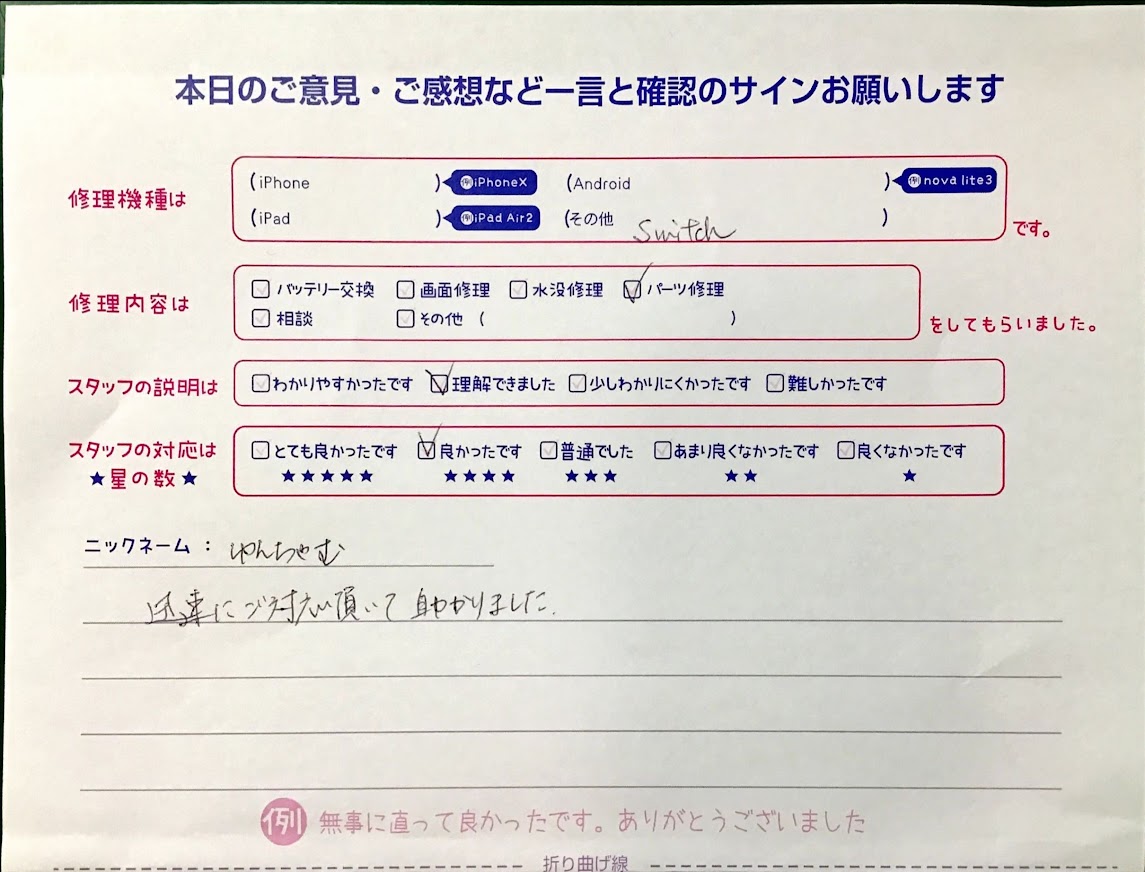 本日のご意見・ご感想など一言と確認のサインお願いします
修理機種は
(iPhone ) 例iPhoneX (Android ) 例nova lite3
(iPad ) 例iPad Air2 (その他 Switch )
です。
修理内容は
バッテリー交換 画面修理 水没修理 パーツ修理
相談 その他 ( )
をしてもらいました。
スタッフの説明は
わかりやすかったです 理解できました 少しわかりにくかったです 難しかったです
スタッフの対応は
★星の数★
とても良かったです 良かったです 普通でした あまり良くなかったです 良くなかったです
★★★★★ ★★★★ ★★★ ★★ ★
ニックネーム : ゆんちゃむ
迅速にご対応頂いて助かりました.
例 無事に直って良かったです。ありがとうございました
折り曲げ線